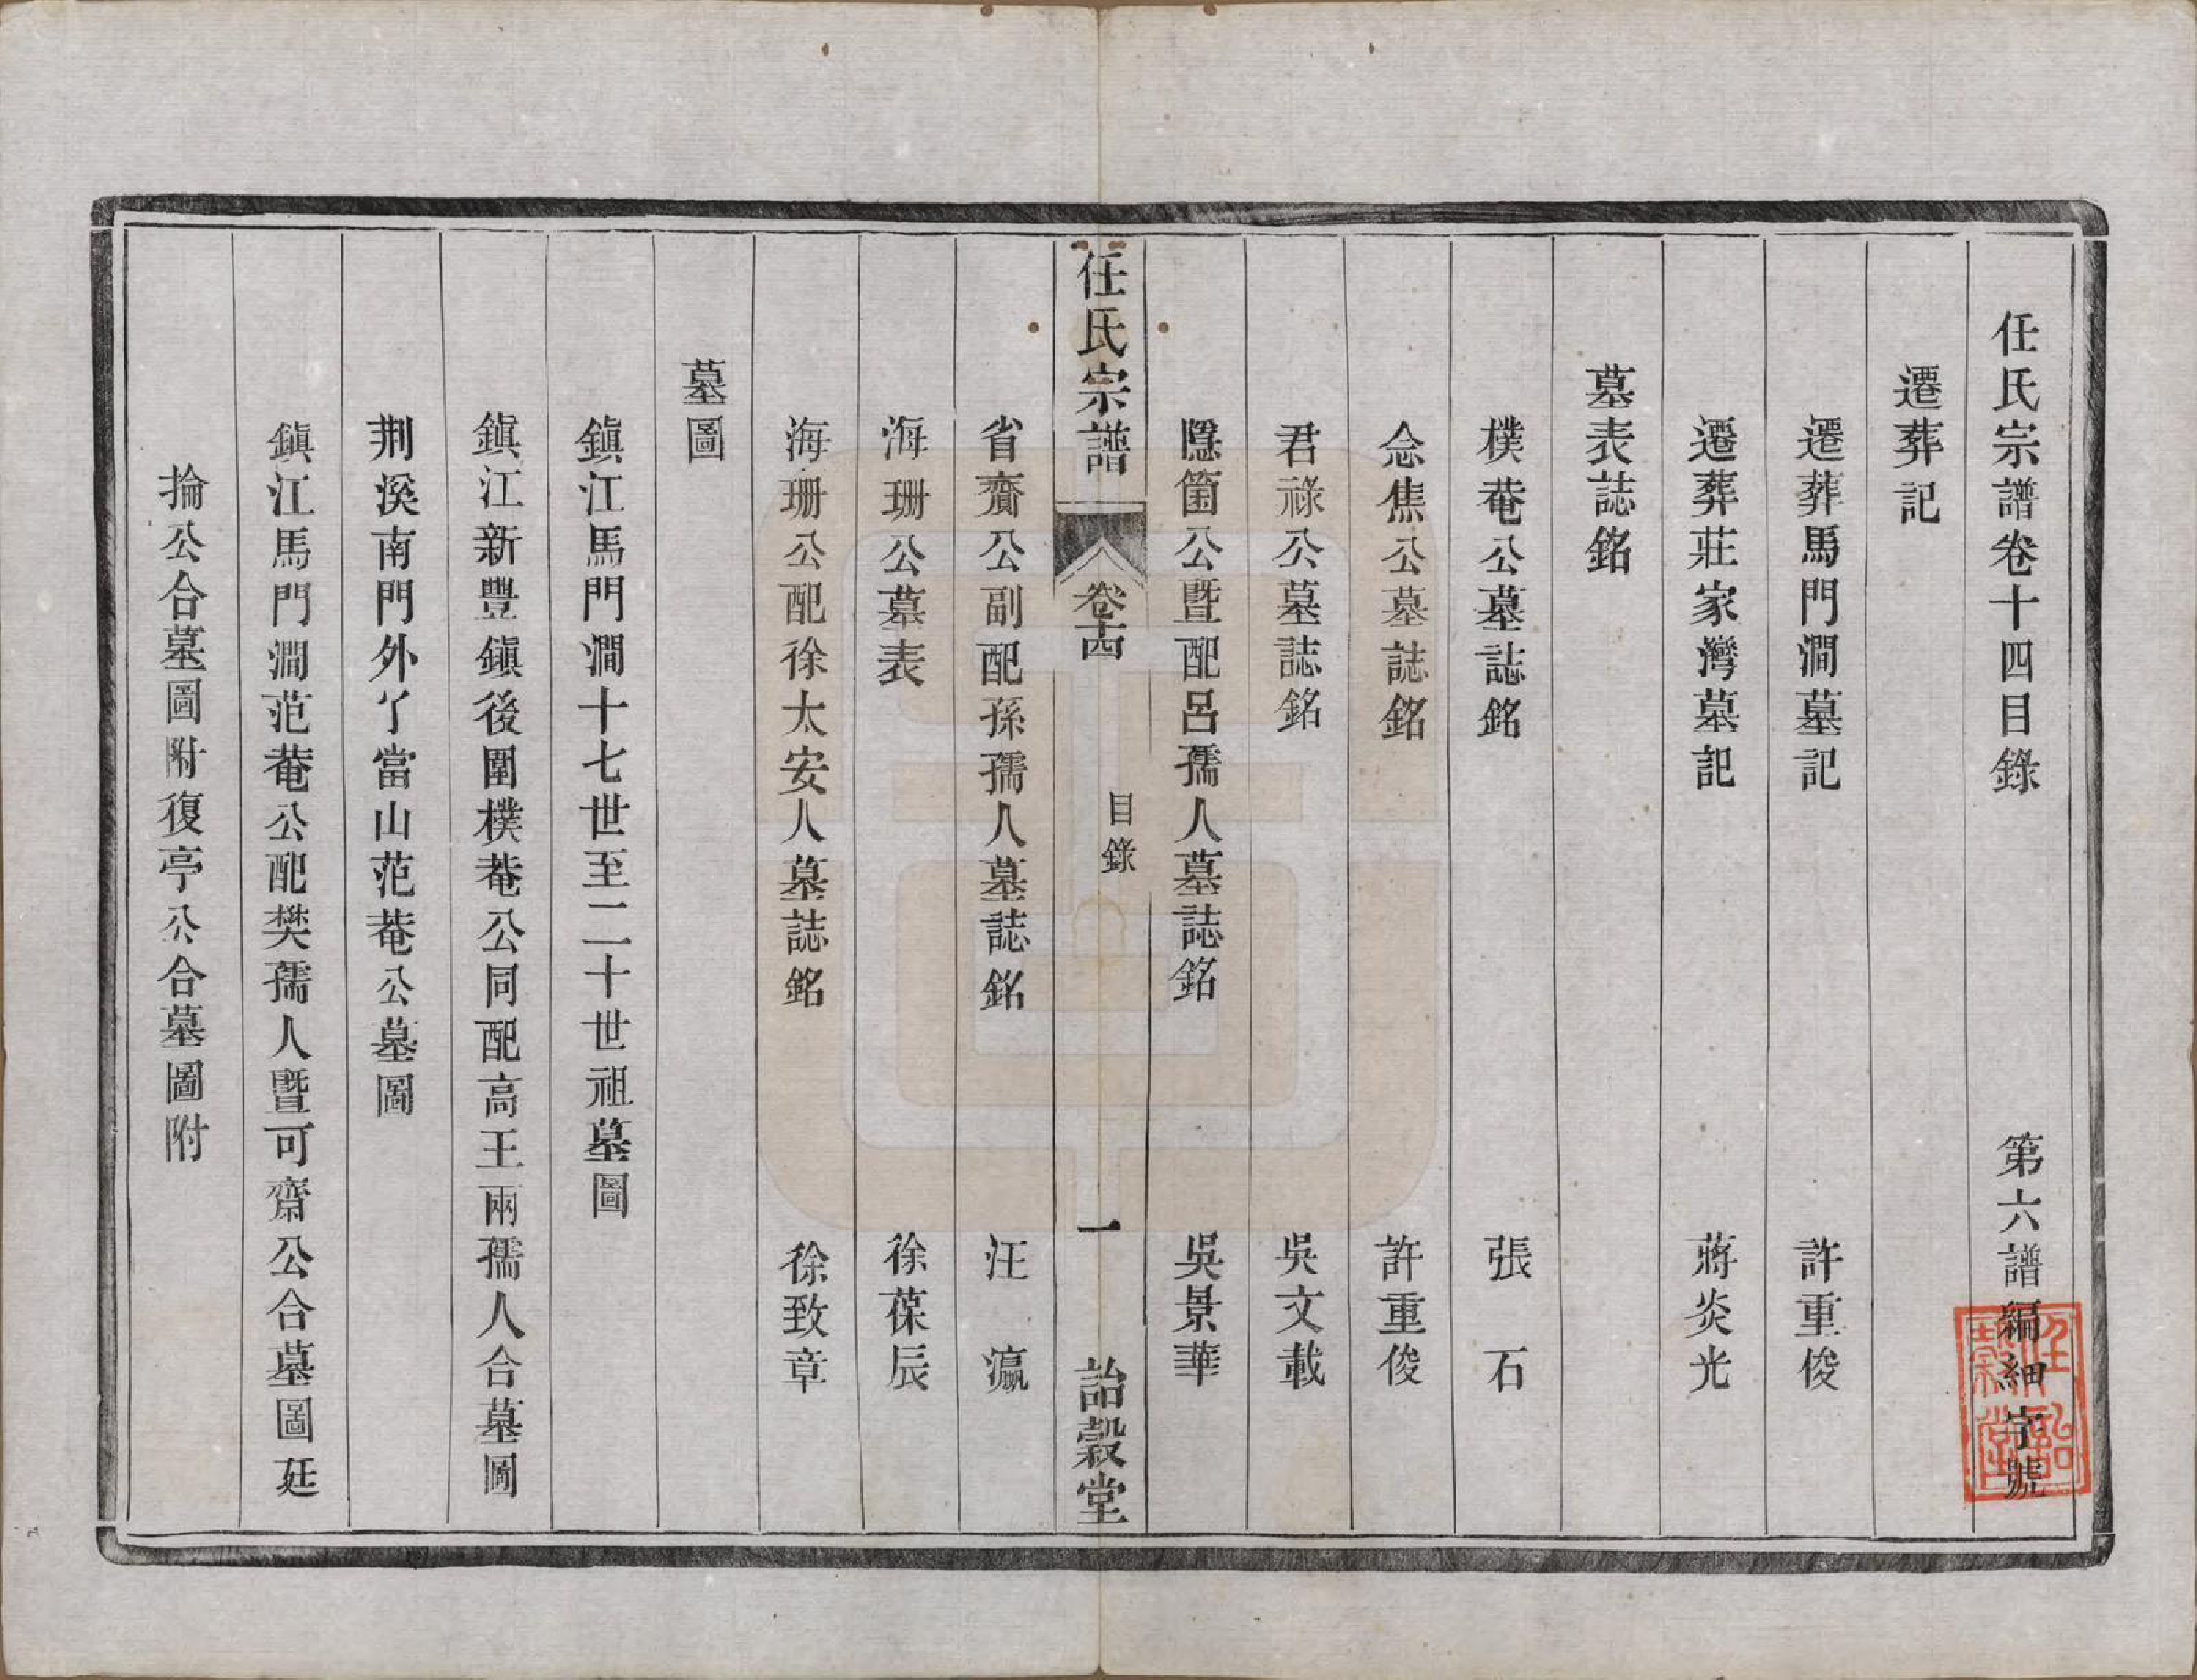 任氏宗譜卷十四目錄 第六譜編細字號
遷葬記
遷葬馬門澗墓記 許重俊
遷葬莊家灣墓記 蔣炎光
墓表誌銘
樸菴公墓誌銘 張 石
念焦公墓誌銘 許重俊
君祿公墓誌銘 吳文載
隱箇公暨配呂孺人墓誌銘 吳景華
任氏宗譜 卷十四 目錄 一 詒穀堂
省齋公副配孫孺人墓誌銘 汪 瀛
海珊公墓表 徐葆辰
海珊公配徐太安人墓誌銘 徐致章
墓圖
鎮江馬門澗十七世至二十世祖墓圖
鎮江新豐鎮後圍樸菴公同配高王兩孺人合墓圖
荆溪南門外丫當山范菴公墓圖
鎮江馬門澗范菴公配樊孺人暨可齋公合墓圖 廷
掄公合墓圖附復亭公合墓圖附